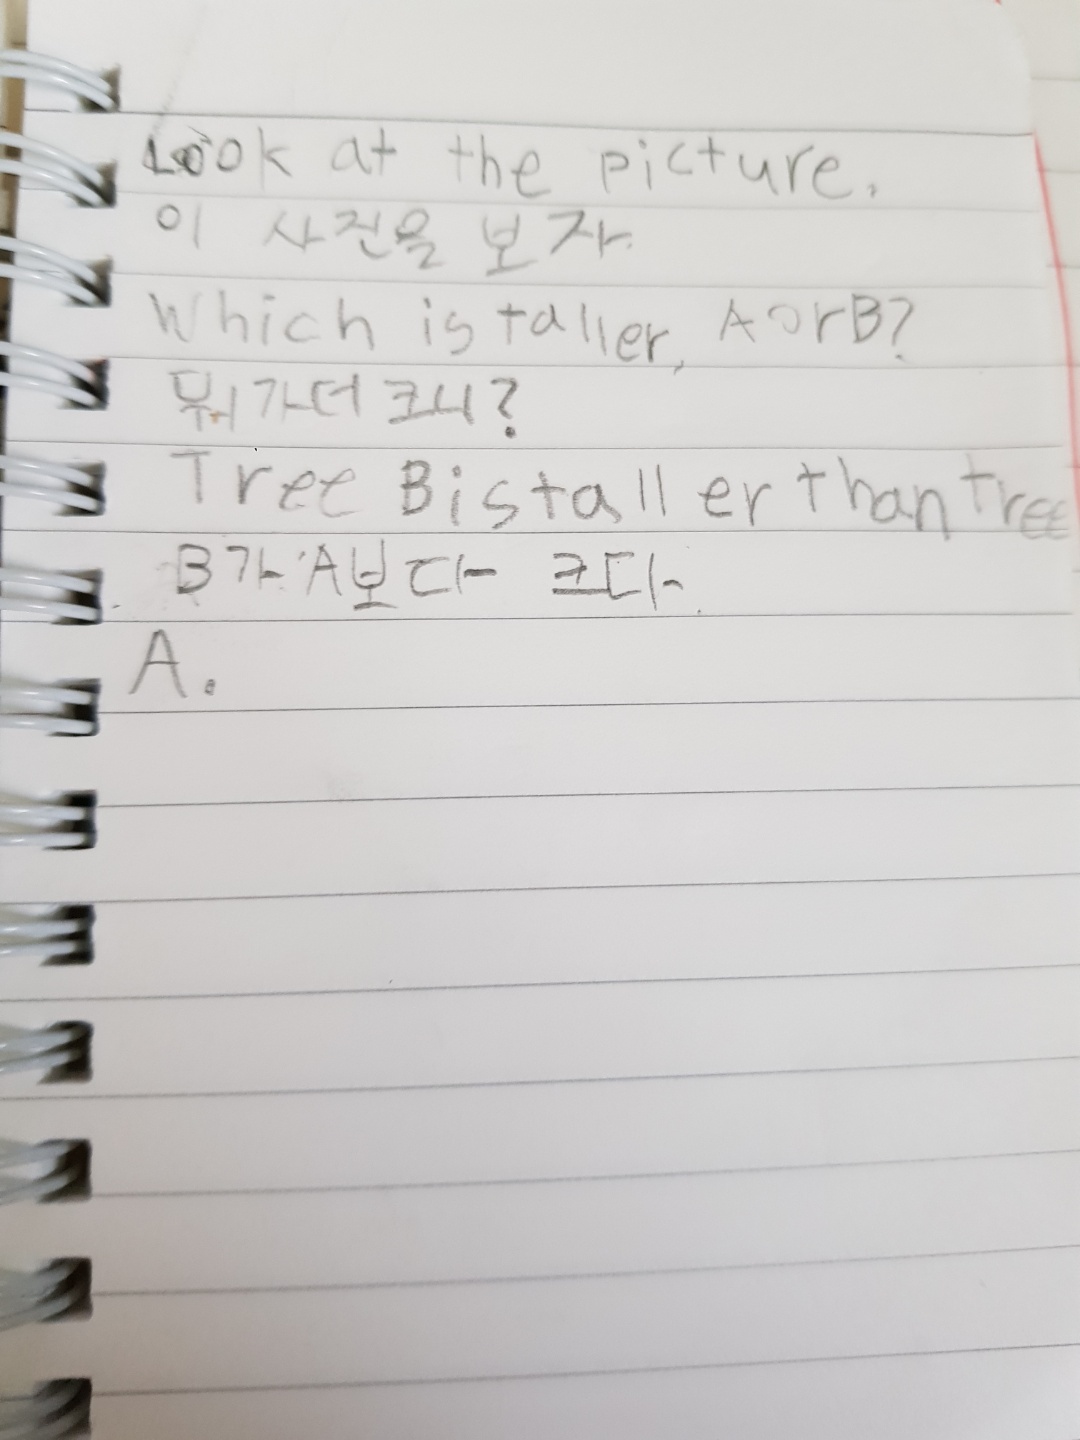 Look at the picture.
이 사진을 보자.
Which is taller, A or B?
뭐가 더 크니?
Tree B is taller than tree
B가 A보다 크다.
A.